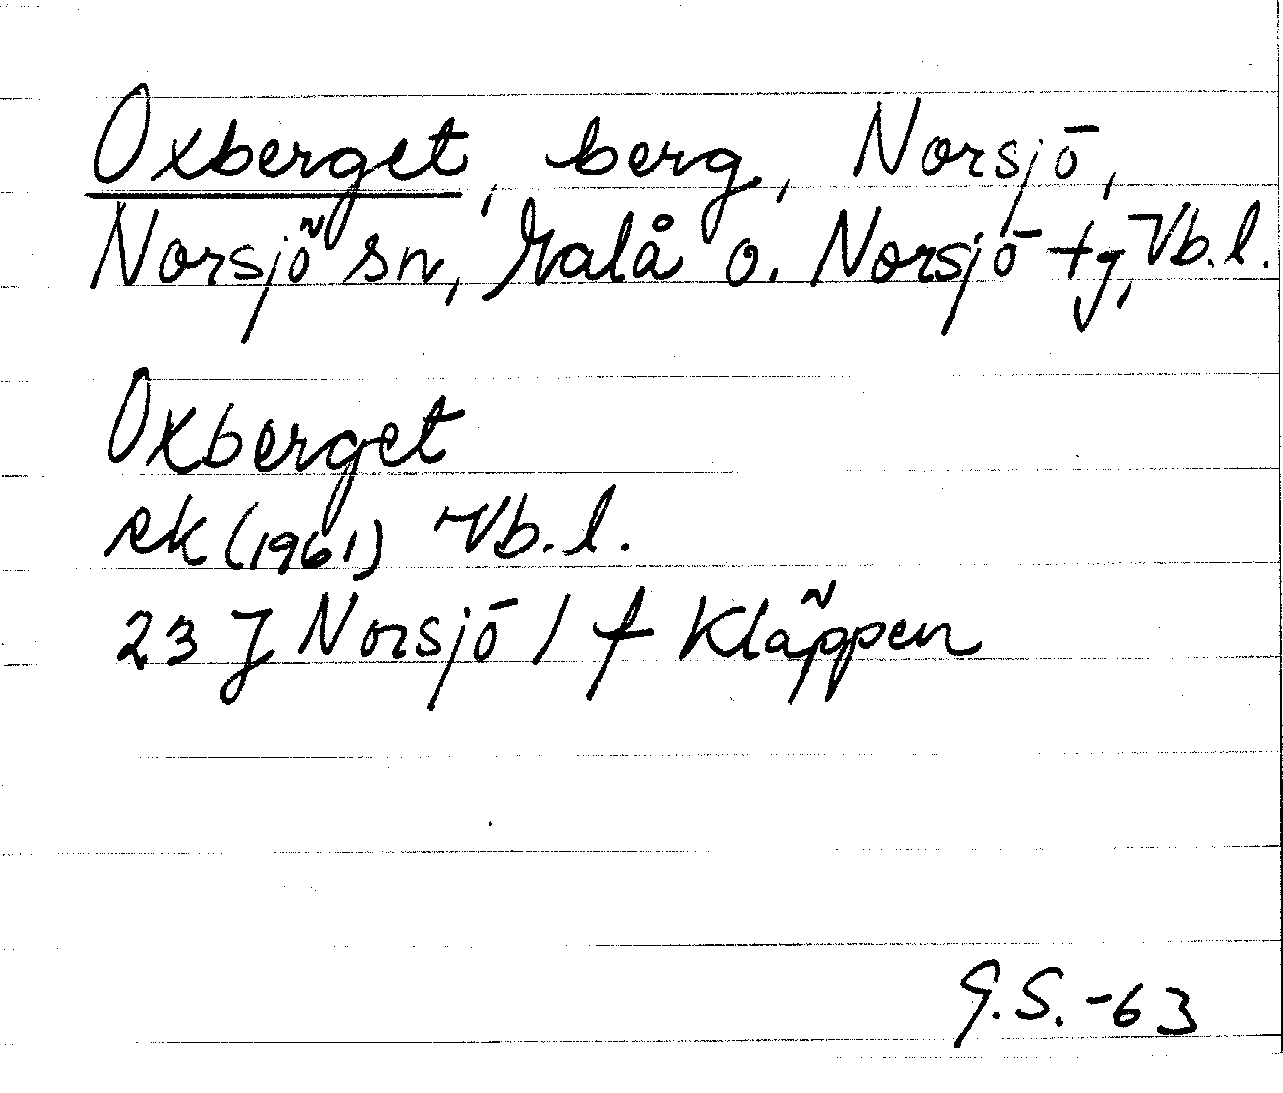 Oxberget, berg, Norsjö,
Norsjö sn, Malå o. Norsjö tg, Vb. l.
Oxberget
ek (1961) Vb. l.
23 J Norsjö / f Kläppen
G.S. -63